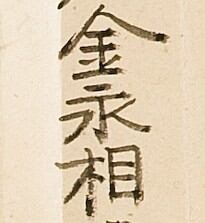 金永相